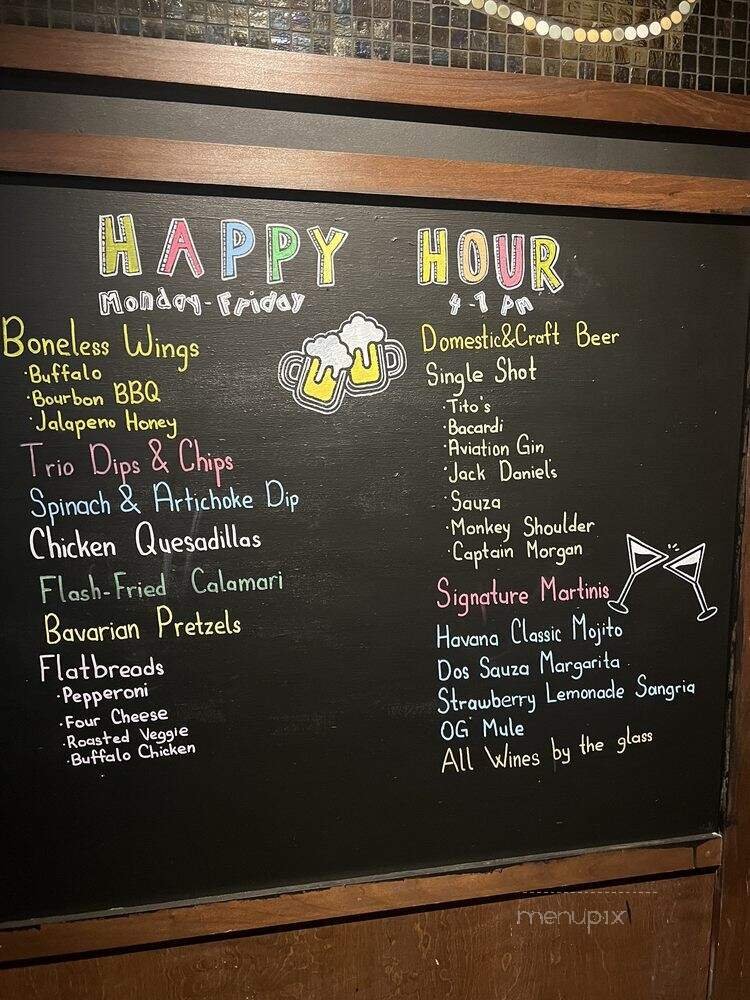 HAPPY HOUR
Monday-Friday 4-7 pm
Boneless Wings
·Buffalo
·Bourbon BBQ
·Jalapeno Honey
Trio Dips & Chips
Spinach & Artichoke Dip
Chicken Quesadillas
Flash-Fried Calamari
Bavarian Pretzels
Flatbreads
·Pepperoni
·Four Cheese
·Roasted Veggie
·Buffalo Chicken
Domestic&Craft Beer
Single Shot
·Tito's
·Bacardi
·Aviation Gin
·Jack Daniel's
·Sauza
·Monkey Shoulder
·Captain Morgan
Signature Martinis
Havana Classic Mojito
Dos Sauza Margarita
Strawberry Lemonade Sangria
OG Mule
All Wines by the glass
menupix